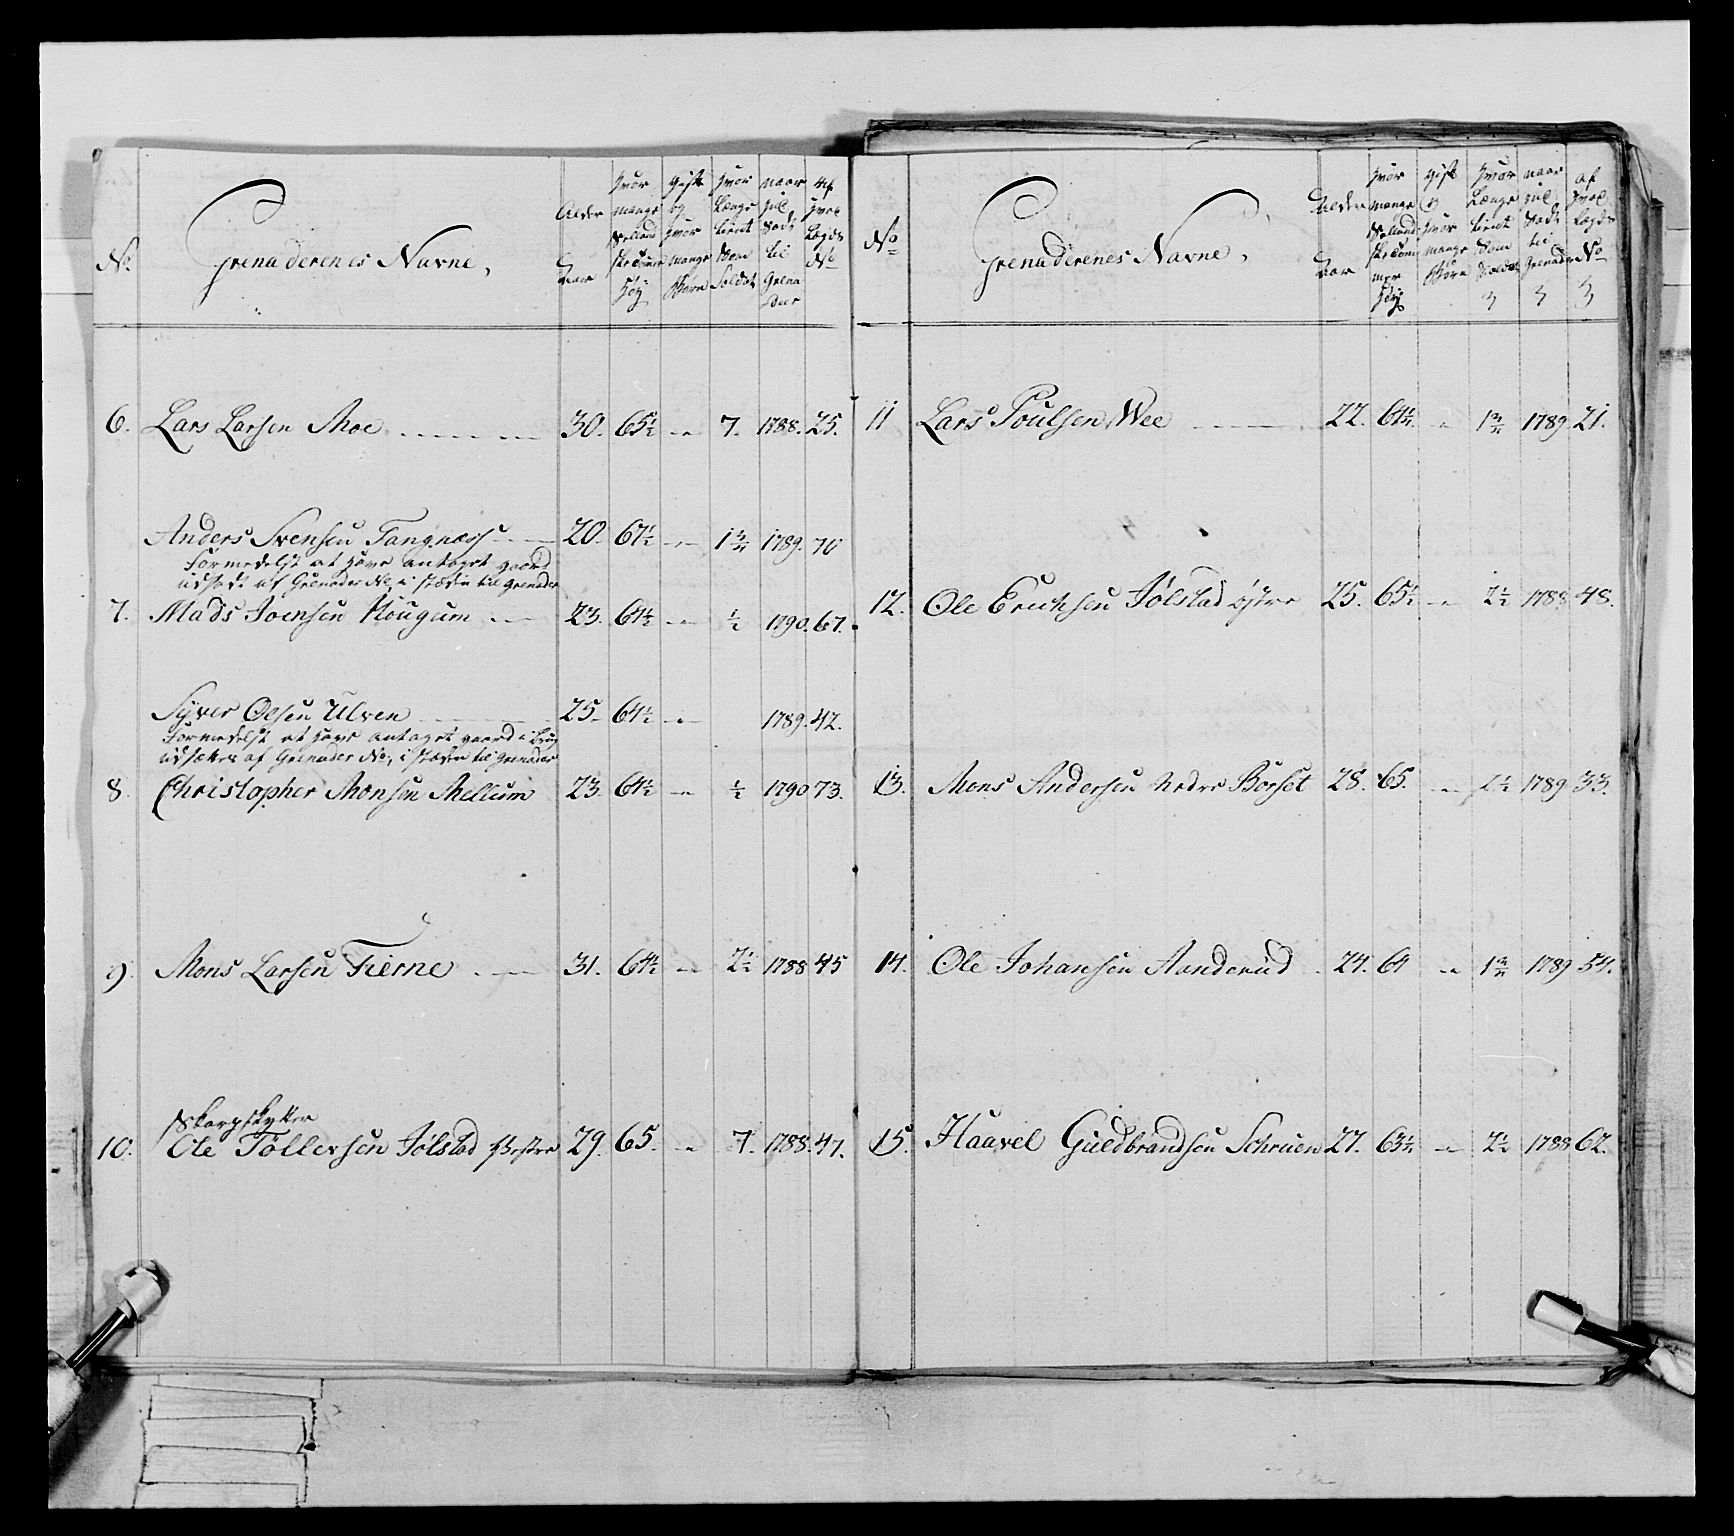 No.
Grenaderenes Navne,
Alder Aar
hvor mange Sellands Tommer Høj
gift og hvor mange Børn
hvor Længe tient som Soldat
naar hid Sadt til Grenadeer
Af hvad Lægds No
6. Lars Larsen Moe 30. 65½ 7. 1788. 25.
Anders Svensen Tangnæss 20. 67½ 1¾ 1789. 70
Formedelst at have antaget gaard
udsadt af Grenader No, i stæden til Grenader
7. Mads Joensen Hougum 23. 64½ ½ 1790. 67.
Syver Olsen Ulven 25 64½ 1789. 42.
Formedelst at have antaget gaard i Brug
udsættes af Grenader No, i stæden til Grenader
8. Christopher Monsen Mellum 23. 64½ ½ 1790 73.
9. Mons Larsen Fierne 31. 64½ 2½ 1788 45
Skarpskytter
10. Ole Tøllersen Jølstad Vestre 29. 65. 7. 1788. 47.
No
Grenaderenes Navne,
Alder Aar
hvor mange Sellands Tommer Høj
gift og hvor mange Børn
hvor Længe tient som Soldat
naar hid Sadt til Grenader
af hvad Lægds No
11 Lars Poulsen Wee 22. 64¼. 1¾ 1789. 21.
12. Ole Erichsen Jølstad østre 25. 65½ 2½ 1788 48.
13. Mons Andersen Nedre Børset 28. 65. 1½ 1789 33.
14. Ole Johansen Aanderud 24. 64 1¾ 1789 54.
15. Haavel Guldbrandsen Schruen 27. 63½ 2½ 1788 62.